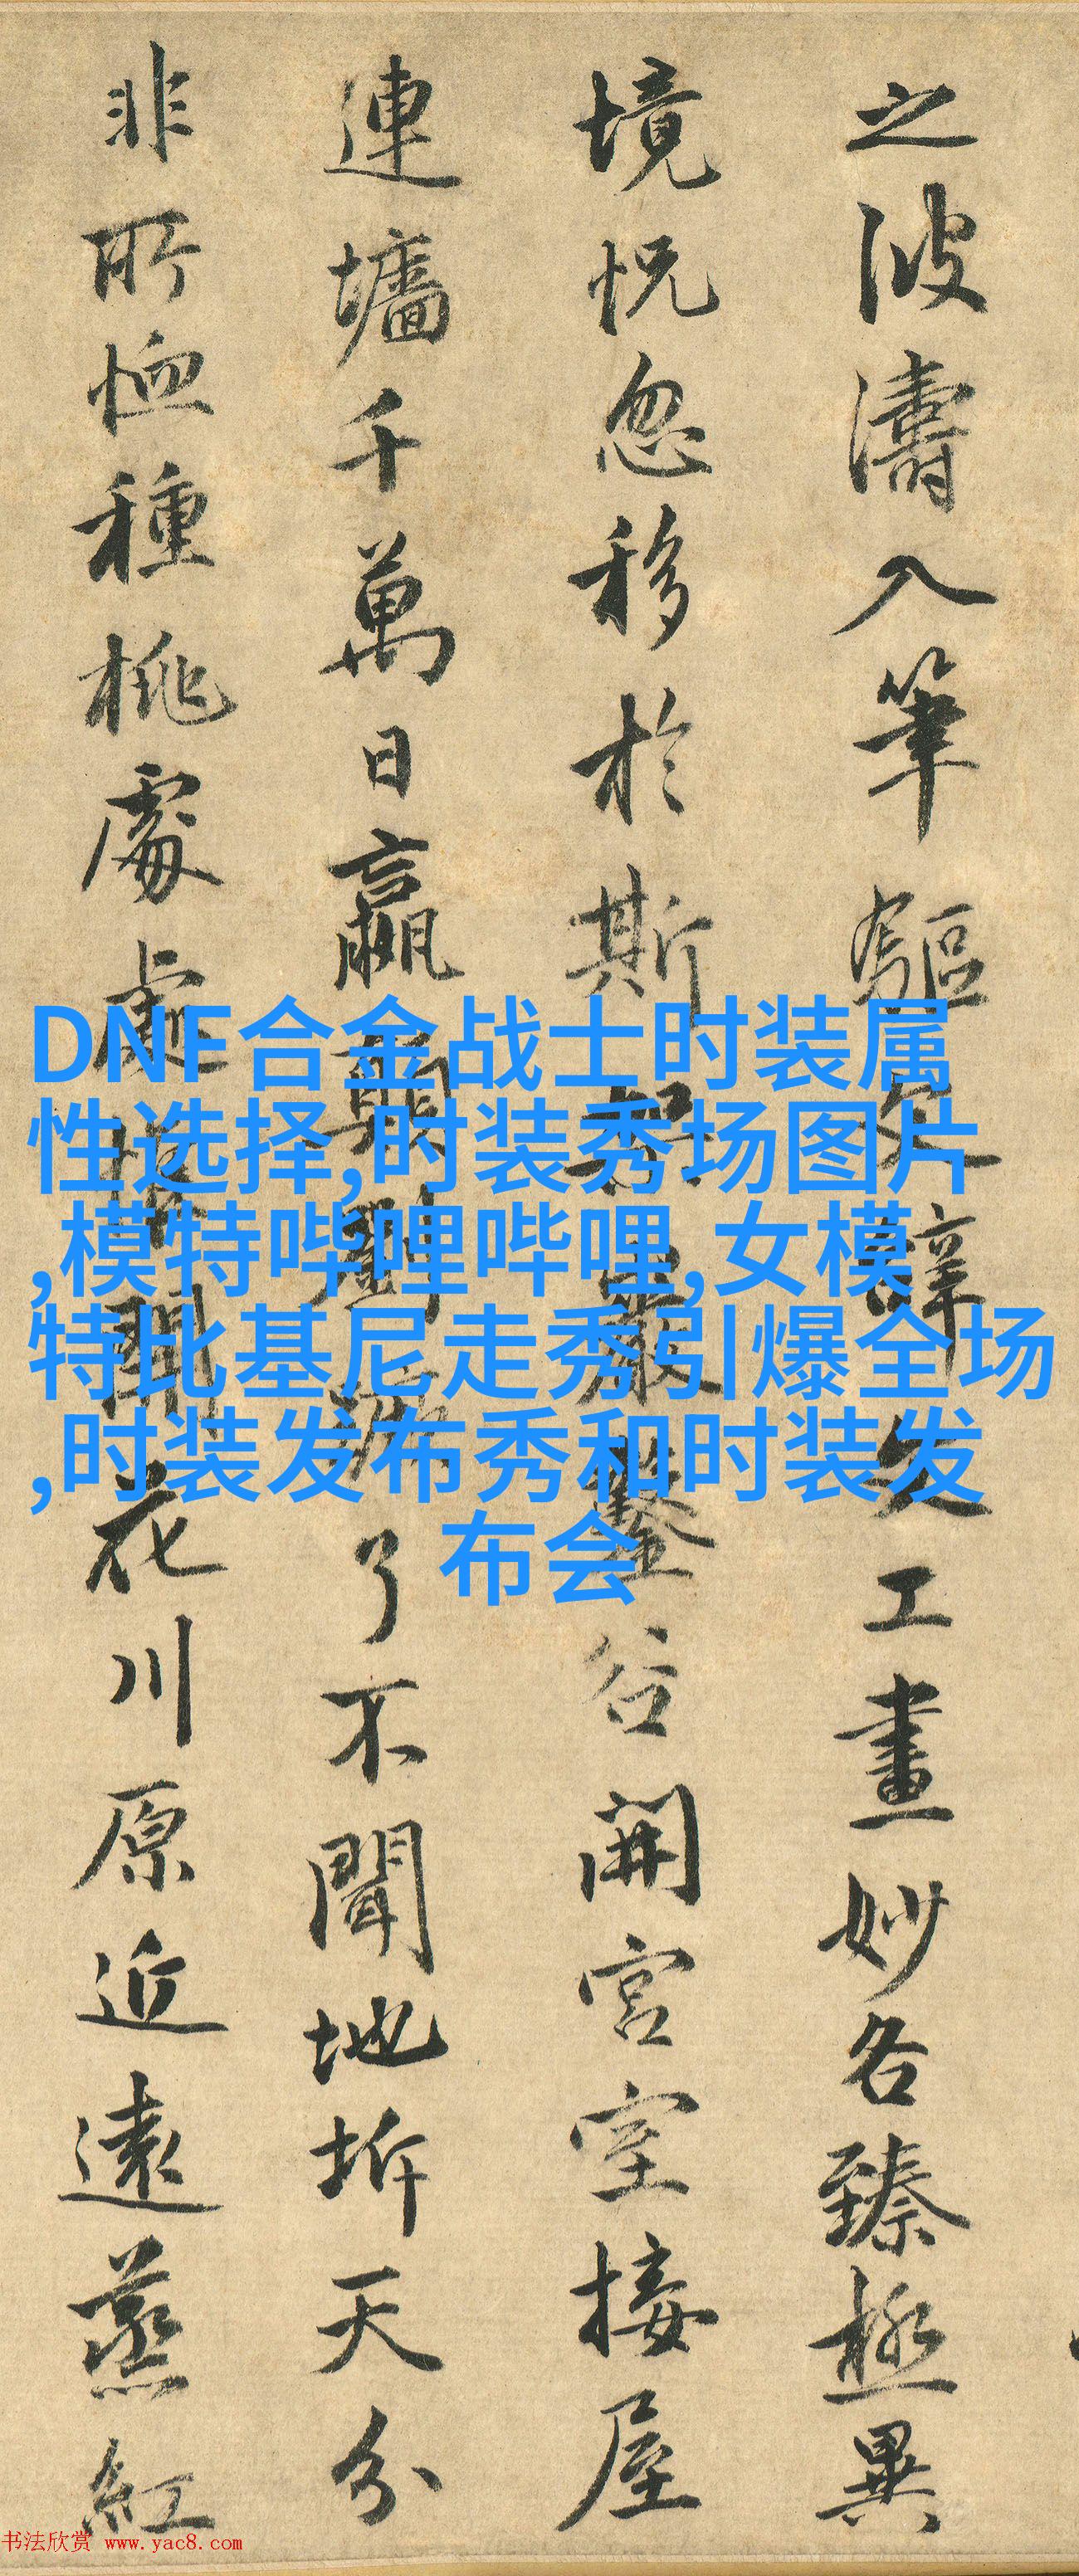 之波濤入筆驅文辭文工畫妙各臻極異
境怳忽移於斯架巖鑿谷開宮室接屋
連墻千萬日嬴顛劉蹶了不聞地坼天分
非所恤種桃處處惟開花川原近遠蒸紅
DNF合金战士时装属
性选择,时装秀场图片
,模特哔哩哔哩,女模
特比基尼走秀引爆全场
,时装发布秀和时装发
布会
书法欣赏 www.yac8.com